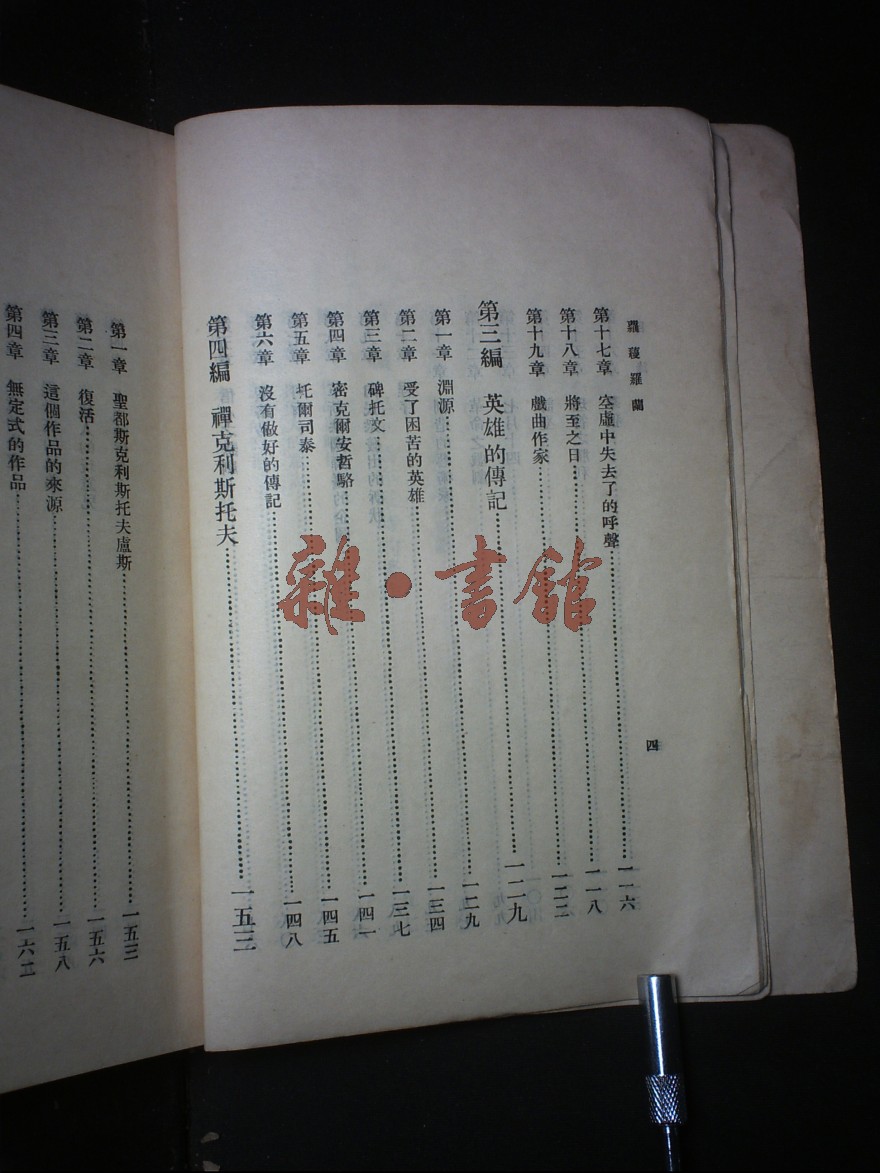 羅蔓羅蘭
四
第十七章 空虛中失去了的呼聲……一一六
第十八章 將至之日……一一八
第十九章 戲曲作家……一二二
第三編 英雄的傳記……一二九
第一章 淵源……一二九
第二章 受了困苦的英雄……一三四
第三章 碑托文……一三七
第四章 密克爾安哲略……一四一
第五章 托爾司泰……一四五
第六章 沒有做好的傳記……一四八
第四編 禪克利斯托夫……一五三
第一章 聖都斯克利斯托夫盧斯……一五三
第二章 復活……一五六
第三章 這個作品的來源……一五八
第四章 無定式的作品……一六二
雜·書館